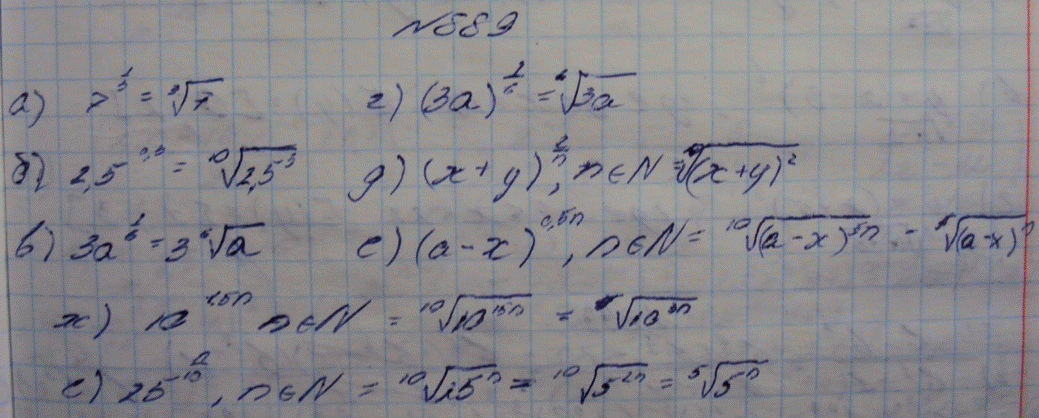 № 889
а) 7^{1/3} = ∛7 г) (3a)^{1/6} = ⁶√(3a)
б) 2,5^{0,3} = ¹⁰√(2,5³) д) (x+y)^{2/n}, n∈N = ⁿ√((x+y)²)
в) 3a^{1/6} = 3 ⁶√a е) (a-x)^{0,5n}, n∈N = ¹⁰√((a-x)^{5n}) =
ж) 10^{1,5n} n∈N = ¹⁰√(10^{15n}) =
е) 25^{n/10}, n∈N = ¹⁰√(25ⁿ) = ¹⁰√(5^{2n}) = ⁵√(5ⁿ)